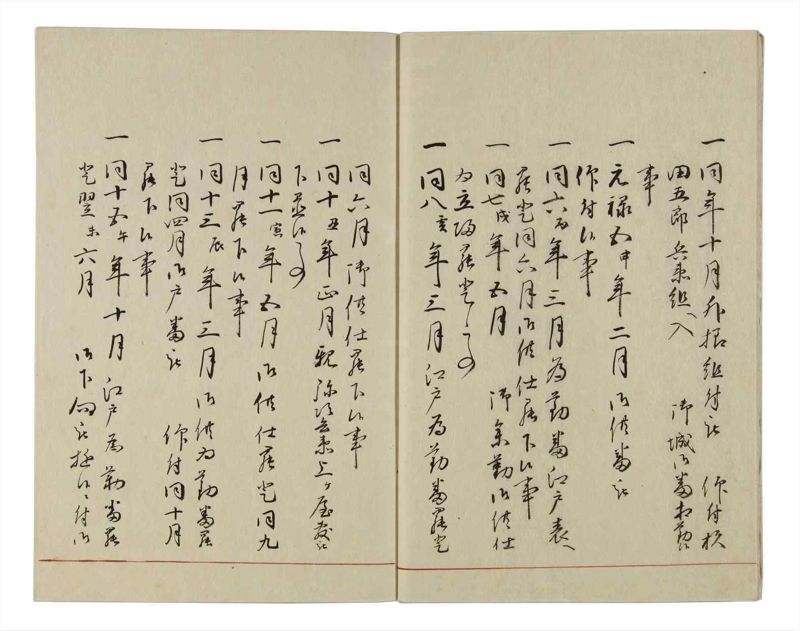 一同年十月外揺組付被 仰付候
田五郎兵衛組ヘ入 御城御番相勤候
事
一元禄五申年二月御供番被
仰付候事
一同六酉年三月為勤番江戸表ヘ
罷登同六月御供仕罷下候事
一同七戌年五月 御参勤御供仕
為立帰罷登候事
一同八亥年三月江戸為勤番罷登
同六月御供仕罷下候事
一同十丑年正月親弥次兵衛上ヶ屋敷
下置候事
一同十一寅年五月御供仕罷登同九
月罷下候事
一同十三辰年三月御供為勤番罷
登同四月御戸番被 仰付同十月
罷下候事
一同十五午年十月江戸為勤番罷
登翌未六月 御下向被遊候付御